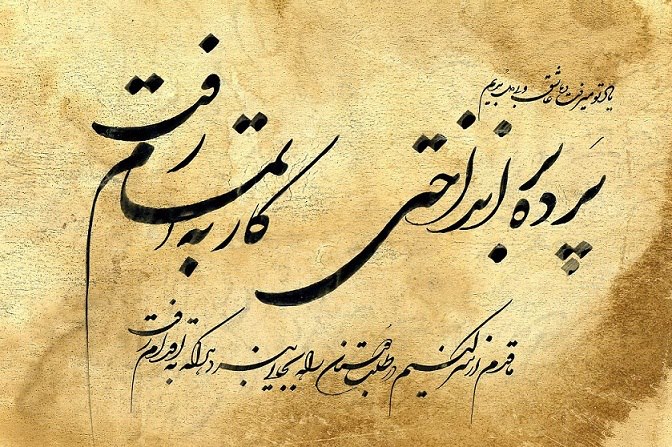 یاد تو میرفت و ما عاشق و بیدل بدیم
پرده برانداختی کار به اتمام رفت
ما قدم از سر کنیم در طلب دوستان راه به جایی نبرد هر که به اقدام رفت